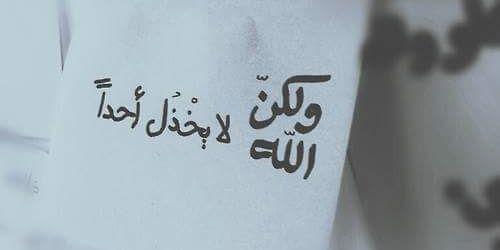 ولكنّ
اللّه لا يخْذُل أحداً